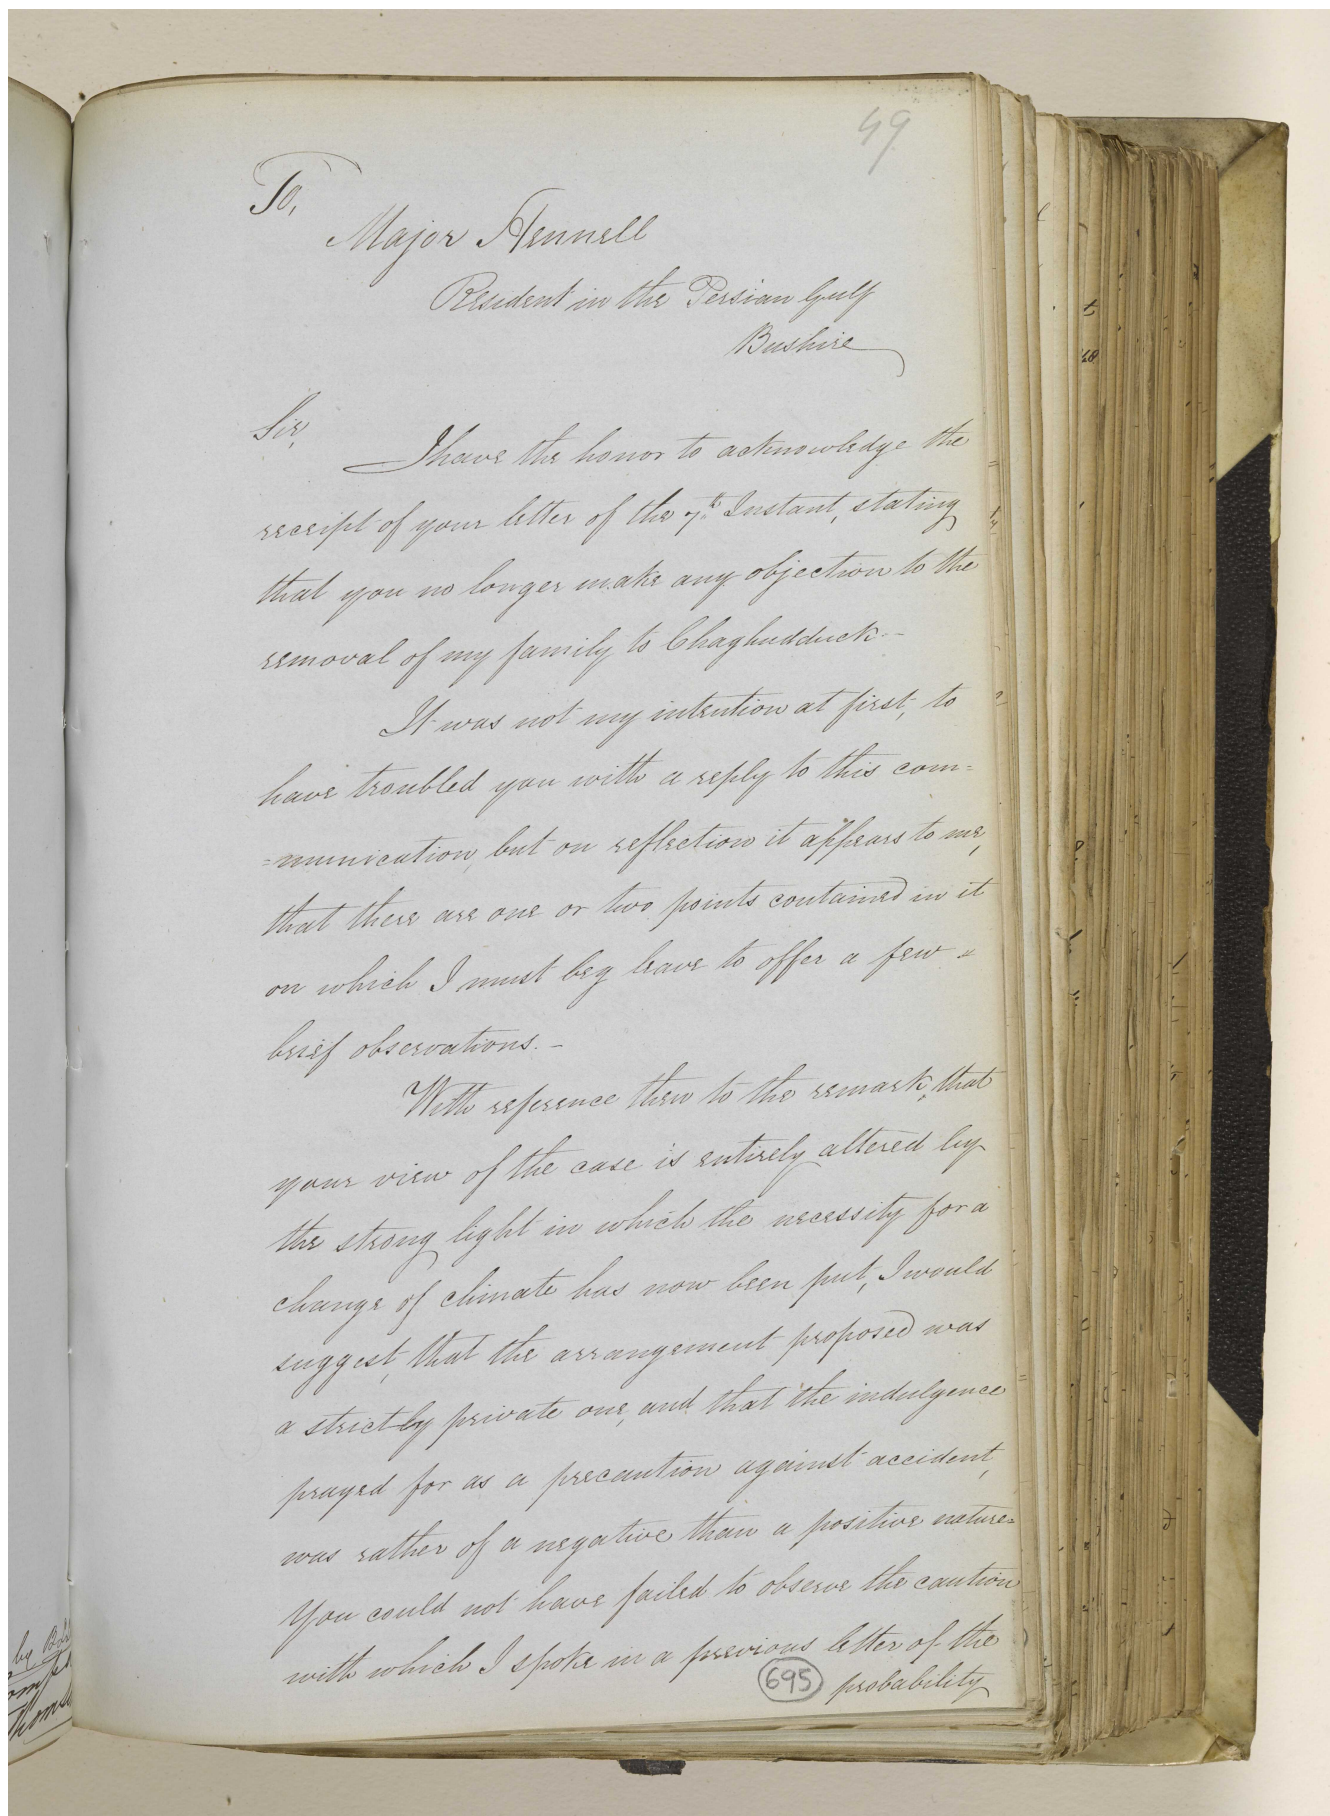 49
To,
Major Hennell
Resident in the Persian Gulf
Bushire
Sir,
I have the honor to acknowledge the
receipt of your letter of the 7th Instant, stating
that you no longer make any objection to the
removal of my family to Chaghudduck.-
It was not my intention at first, to
have troubled you with a reply to this com=
=munication, but on reflection it appears to me,
that there are one or two points contained in it
on which I must beg leave to offer a few
brief observations.-
With reference then to the remark, that
your view of the case is entirely altered by
the strong light in which the necessity for a
change of climate has now been put, I would
suggest, that the arrangement proposed was
a strictly private one, and that the indulgence
prayed for as a precaution against accident,
was rather of a negative than a positive nature=
You could not have failed to observe the caution
with which I spoke in a previous letter of the
695 probability
by